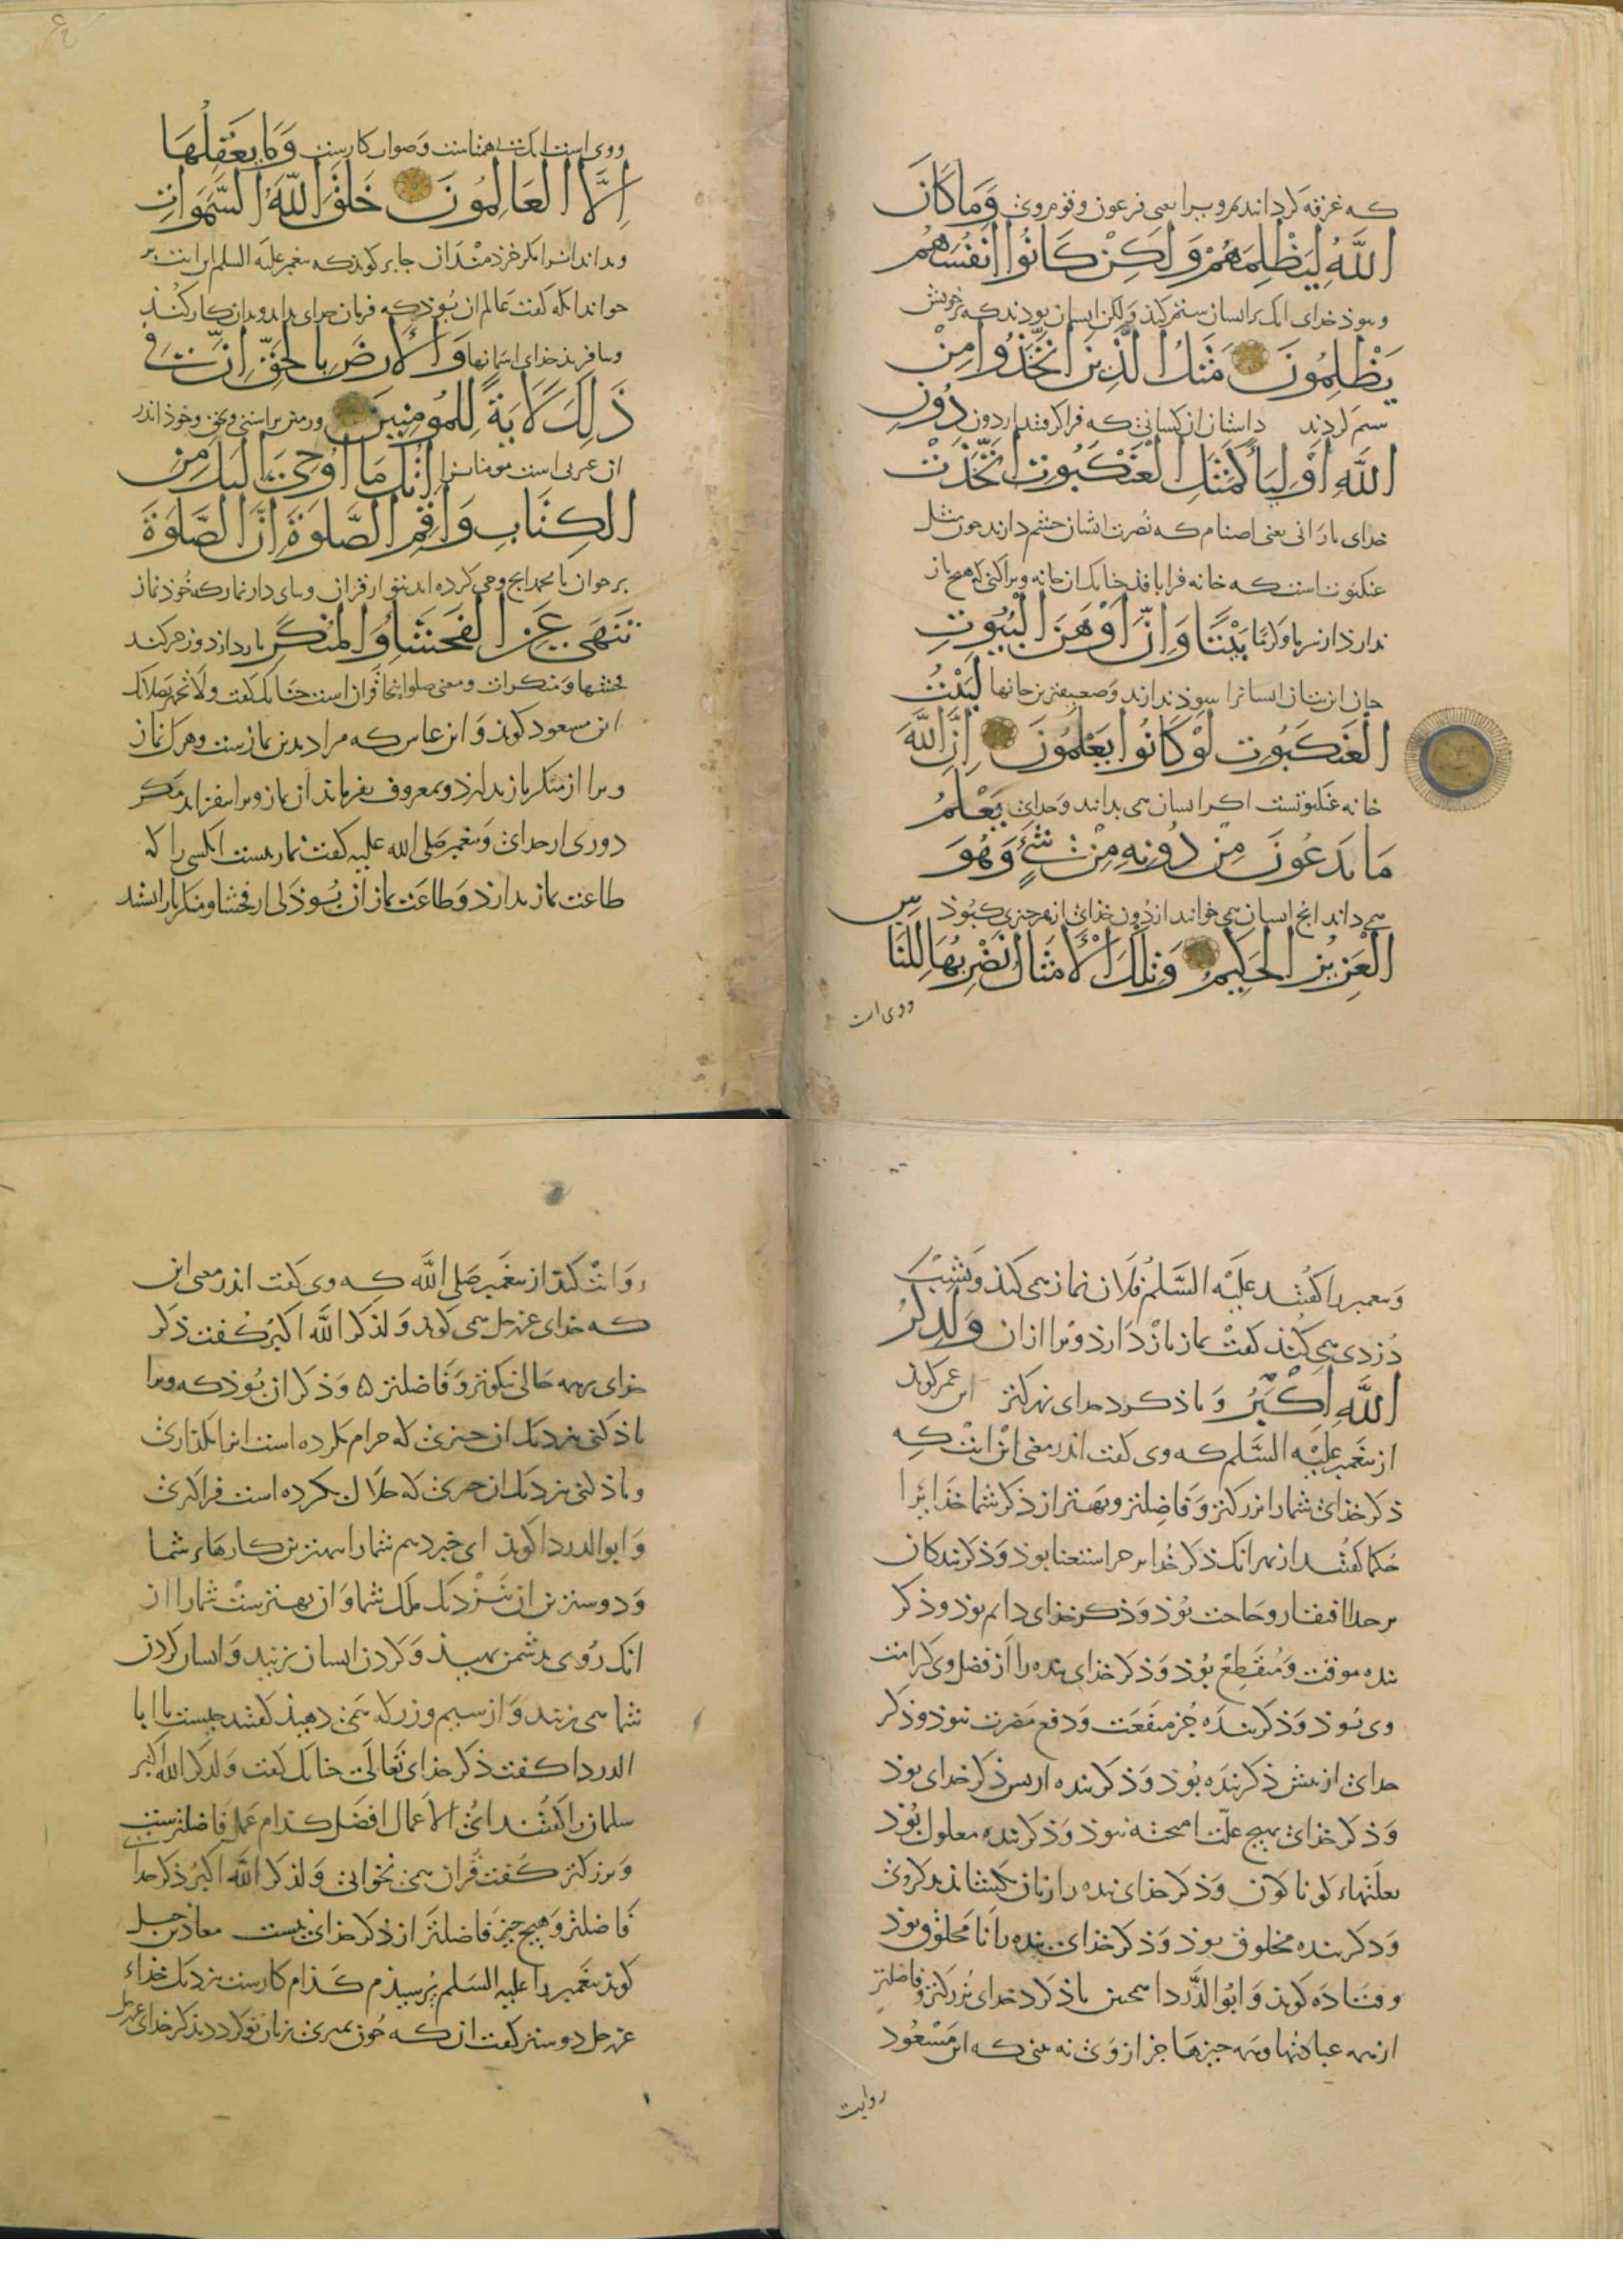 که غرقه کردانندم ویرا یعنی فرعون و قوم وی وَمَا كَانَ
اللَّهُ لِيَظْلِمَهُمْ وَلَكِنْ كَانُوا أَنْفُسَهُمْ
و نبوذ خدای انک بر ایشان ستم کند ولکن ایشان بودند که بر خویش
يَظْلِمُونَ مَثَلُ الَّذِينَ اتَّخَذُوا مِنْ
ستم کردند داستان از کسانی که فرا کرفتند از دون دُونِ
اللَّهِ أَوْلِيَاءَ كَمَثَلِ الْعَنْكَبُوتِ اتَّخَذَتْ
خدای یارانی یعنی اصنام که نصرت ایشان چشم دارند چون مثل
عنکبوت است که خانه فرا بافد چنانک ان خانه ویرا هیچ باز
ندارد از سرما و کرما بَيْتًا وَإِنَّ أَوْهَنَ الْبُيُوتِ
ایشانرا سوذ ندارند و ضعیفترین خانها لَبَيْتُ
الْعَنْكَبُوتِ لَوْ كَانُوا يَعْلَمُونَ إِنَّ اللَّهَ
خانه عنکبوتست اکر ایشان می بدانند و خدای يَعْلَمُ
مَا يَدْعُونَ مِنْ دُونِهِ مِنْ شَيْءٍ وَهُوَ
می داند انچ ایشان می خوانند از دون خدای از هر چیزی کبوذ
الْعَزِيزُ الْحَكِيمُ وَتِلْكَ الْأَمْثَالُ نَضْرِبُهَا لِلنَّاسِ
ووی است
ووی است انک بی همتاست و صواب کارست وَمَا يَعْقِلُهَا
إِلَّا الْعَالِمُونَ خَلَقَ اللَّهُ السَّمَوَاتِ
و نداند انرا مکر خردمندان جابر کوید که پیغمبر علیه السلم این ایت بر
خواند انکه کفت عالم ان بوذ که فرمان خدای بداند و بدان کار کند
و بیافرید خدای اسمانها وَالْأَرْضَ بِالْحَقِّ إِنَّ فِي
ذَلِكَ لَآيَةً لِلْمُؤْمِنِينَ و زمین براستی و بحق و خود اندر
ان عبرتی است مومنانرا اتْلُ مَا أُوحِيَ إِلَيْكَ مِنَ
الْكِتَابِ وَأَقِمِ الصَّلَوةَ إِنَّ الصَّلَوةَ
بر خوان یا محمد انچ وحی کرده اند بتو از قران و بپای دار نماز که خود نماز
تَنْهَى عَنِ الْفَحْشَاءِ وَالْمُنْكَرِ باز دارد و دور کند
فحشها و منکرات و معنی صلوة اینجا قران است چنانک کفت ولا تجهر بصلاتک
ابن مسعود کوید و ابن عباس که مراد بدین نمازست و هر که نماز
ویرا از منکر باز ندارد و بمعروف نفرماند ان نماز ویرا نیفزاید مکر
دوری از خدای و پیغمبر صلی الله علیه کفت نماز نیست انکسی را که
طاعت نماز ندارد و طاعت نماز ان بوذ که از فحشا و منکر باز ایستد
و پیغمبر را کفتند علیه السلم فلان نماز می کند و بشب
دزدی می کند کفت نماز باز دارد ویرا ازان وَلَذِكْرُ
اللَّهِ أَكْبَرُ و یاذ کرد خدای بزرکتر ابن عمر کوید
از پیغمبر علیه السلم که وی کفت اندر معنی این ایت که
ذکر خدای شما را بزرکتر و فاضلتر و بهتر از ذکر شما خدایرا
حکما کفتند از بهر انک ذکر خدا استغنا بوذ و ذکر بندکان
مر خدا را افتقار و حاجت بوذ و ذکر خدای دایم بوذ و ذکر
بنده موقت و منقطع بوذ و ذکر خدای بنده را از فضل وی کرامت
وی بوذ و ذکر بنده جز منفعت و دفع مضرت نبوذ و ذکر
خدای از پیش ذکر بنده بوذ و ذکر بنده از پس ذکر خدای بوذ
و ذکر خدای بهیچ علت امیخته نبوذ و ذکر بنده معلول بوذ
بعلتهاء کوناکون و ذکر خدای بنده را
و ذکر بنده مخلوق بوذ و ذکر خدای بنده را نا مخلوق بوذ
و قتاده کوید و ابو الدردا همچنین یاذ کرد خدای بزرکتر و فاضلتر
از همه عبادتها و همه چیزها جز از وی نه بینی که ابن مسعود
روایت
روایت کند از پیغمبر صلی الله که وی کفت اندر معنی این
که خدای عز و جل می کوید وَلَذِكْرُ اللَّهِ أَكْبَرُ کفت ذکر
خدای بهمه حالی نیکوتر و فاضلتر و ذکر ان بوذ که ویرا
یاذ کنی نزدیک ان چیزی که حرام بکرده است انرا بکذاری
و یاذ کنی نزدیک ان چیزی که حلال بکرده است فرا کیری
و ابو الدردا کوید ای خبر دهم شما را ببهترین کارهاء شما
و دوسترین ان نزدیک ملک شما و ان بهترست شما را از
انک روی بدشمن نهید و کردن ایشان بزنید و ایشان کردن
شما می زنند و از سیم و زر که می دهید کفتند چیست یا ابا
الدردا کفت ذکر خدای تعالی چنانک کفت ولذکر الله اکبر
سلمان را کفتند ای الاعمال افضل کدام عمل فاضلترست
و بزرکتر کفت قران می نخوانی ولذکر الله اکبر ذکر خدای
فاضلتر و هیچ چیز فاضلتر از ذکر خدای نیست معاذ جبل
کوید پیغمبر را علیه السلم پرسیذم کذام کارست نزدیک خداء
عز و جل دوستتر کفت ان که چون بمیری زبان تو کردد بذکر خدای عز و جل